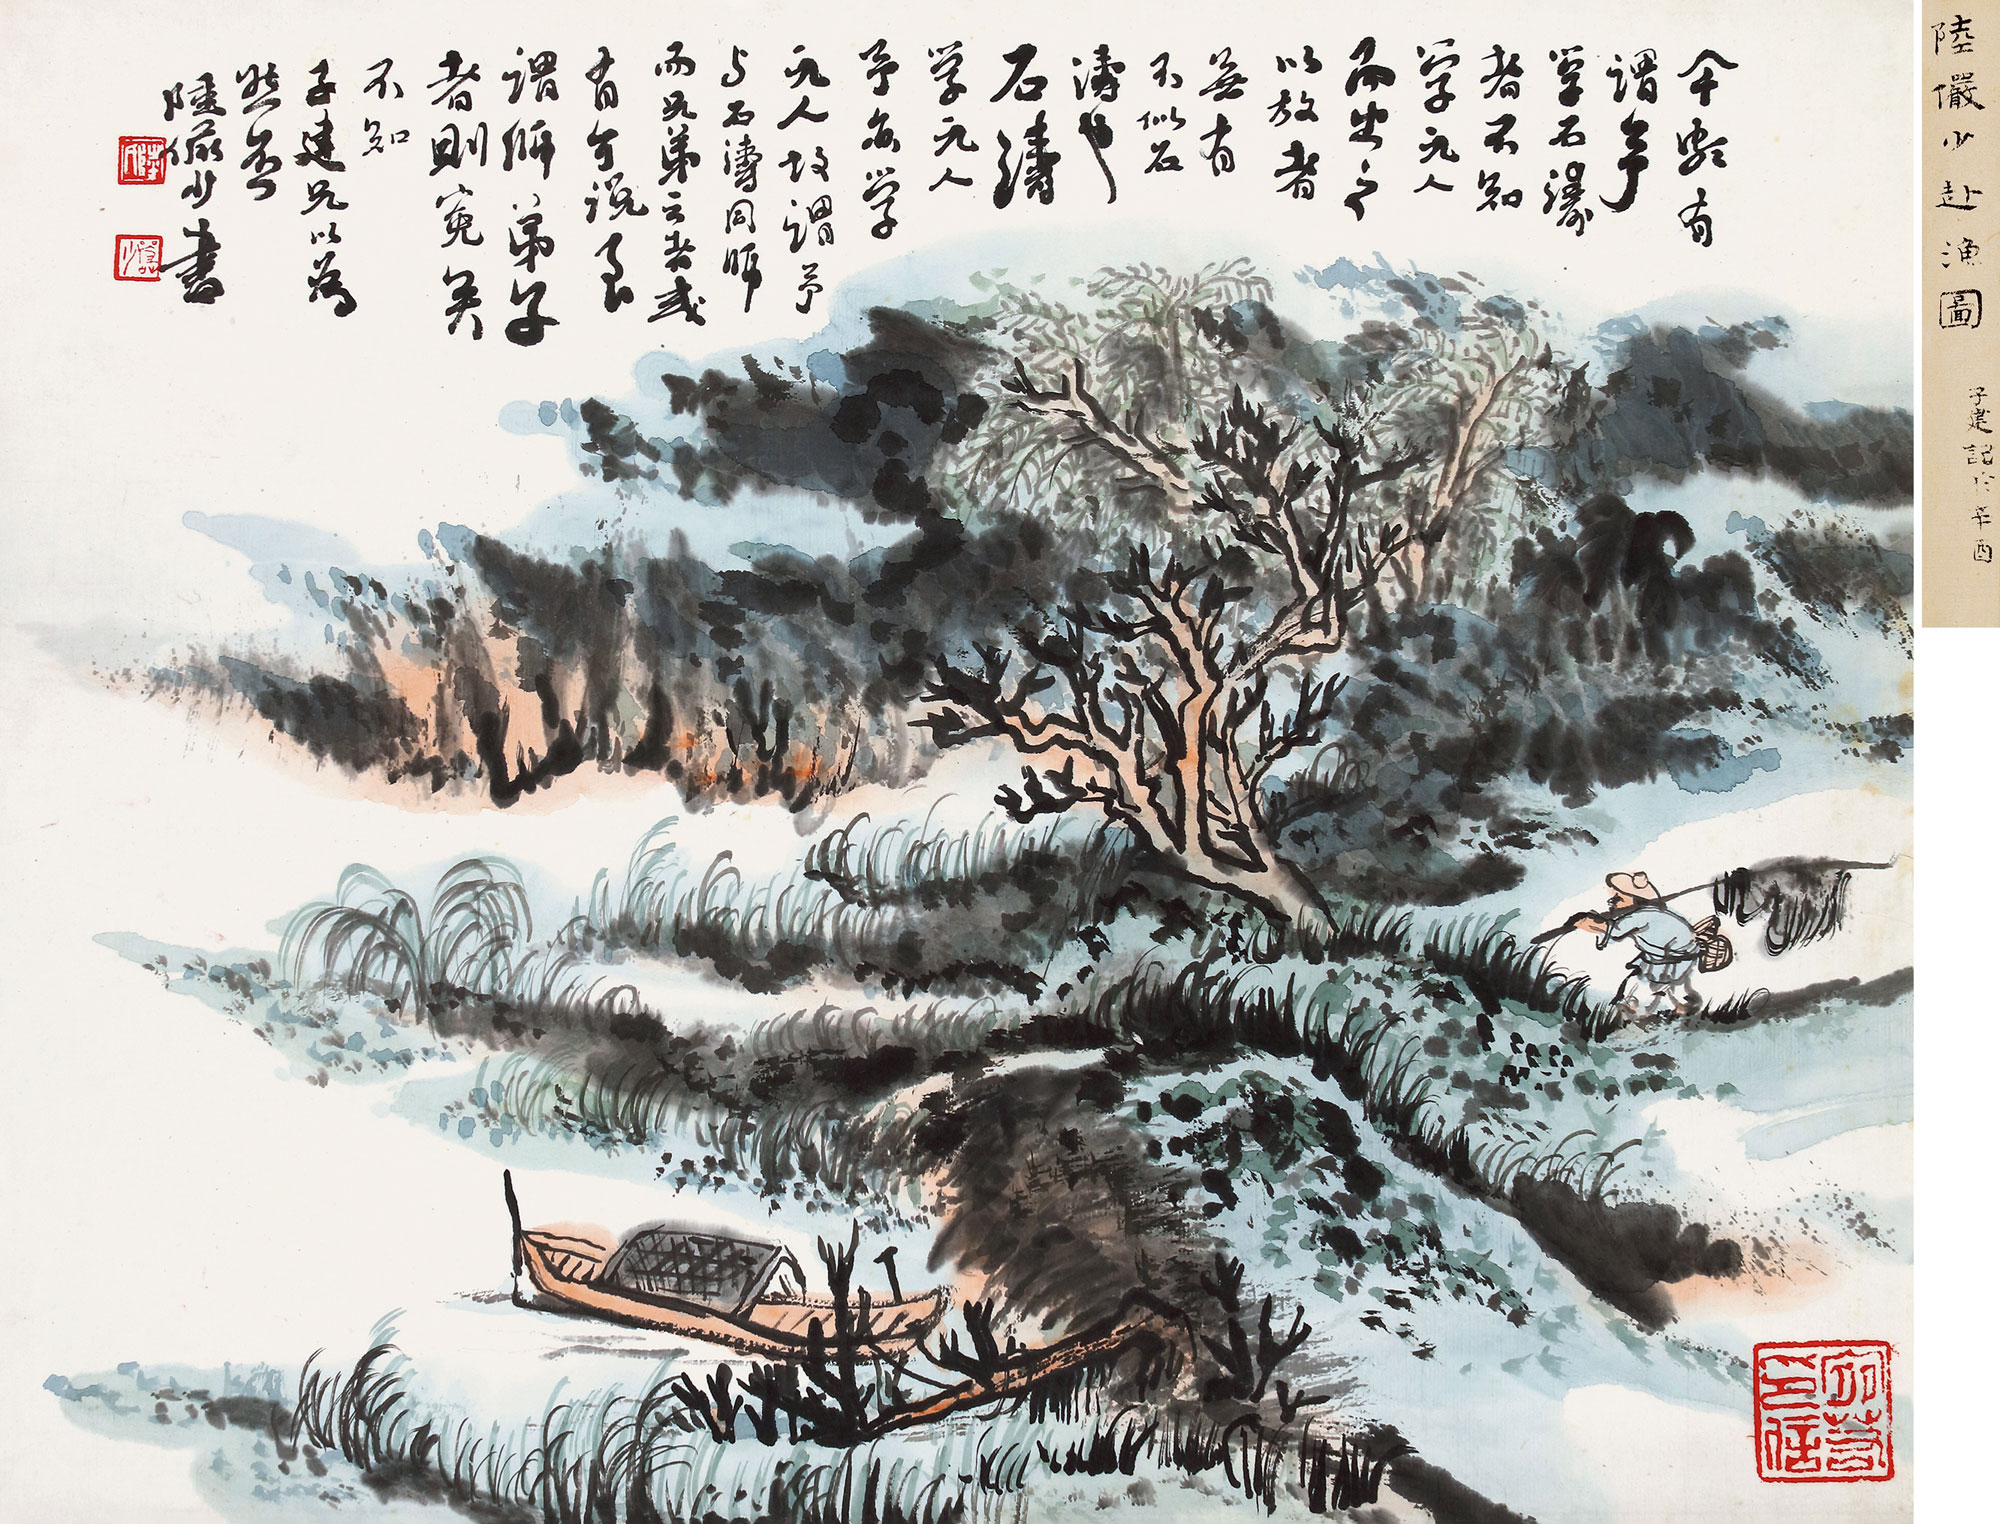 有
謂予
學石濤
者不知
學元人
而出之
以放者
無有
不似石
濤也
石濤
學元人
予亦學
元人故謂予
与石濤同師
而兄弟云者或
有可說焉
謂師弟子
者則冤矣
不知
子建兄以為
然否
陸儼少書
陸儼少赴漁圖
子建詺於辛酉